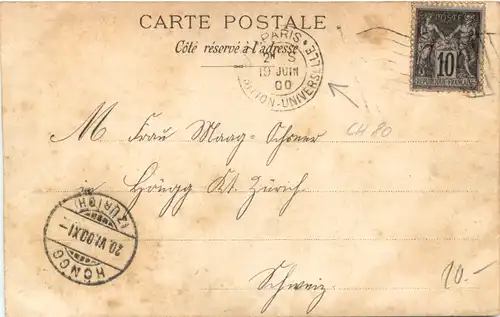 CARTE POSTALE.
Côté réservé à l'adresse
PARIS
19 JUIN
00
ITION-UNIVERSELLE
POSTE
10
FRANÇAISE
M Frau Maag-
CH 80
in Höngg Kt. Zürich
HÖNGG
20.VI.00.XI-
(ZÜRICH)
Schweiz
10.-